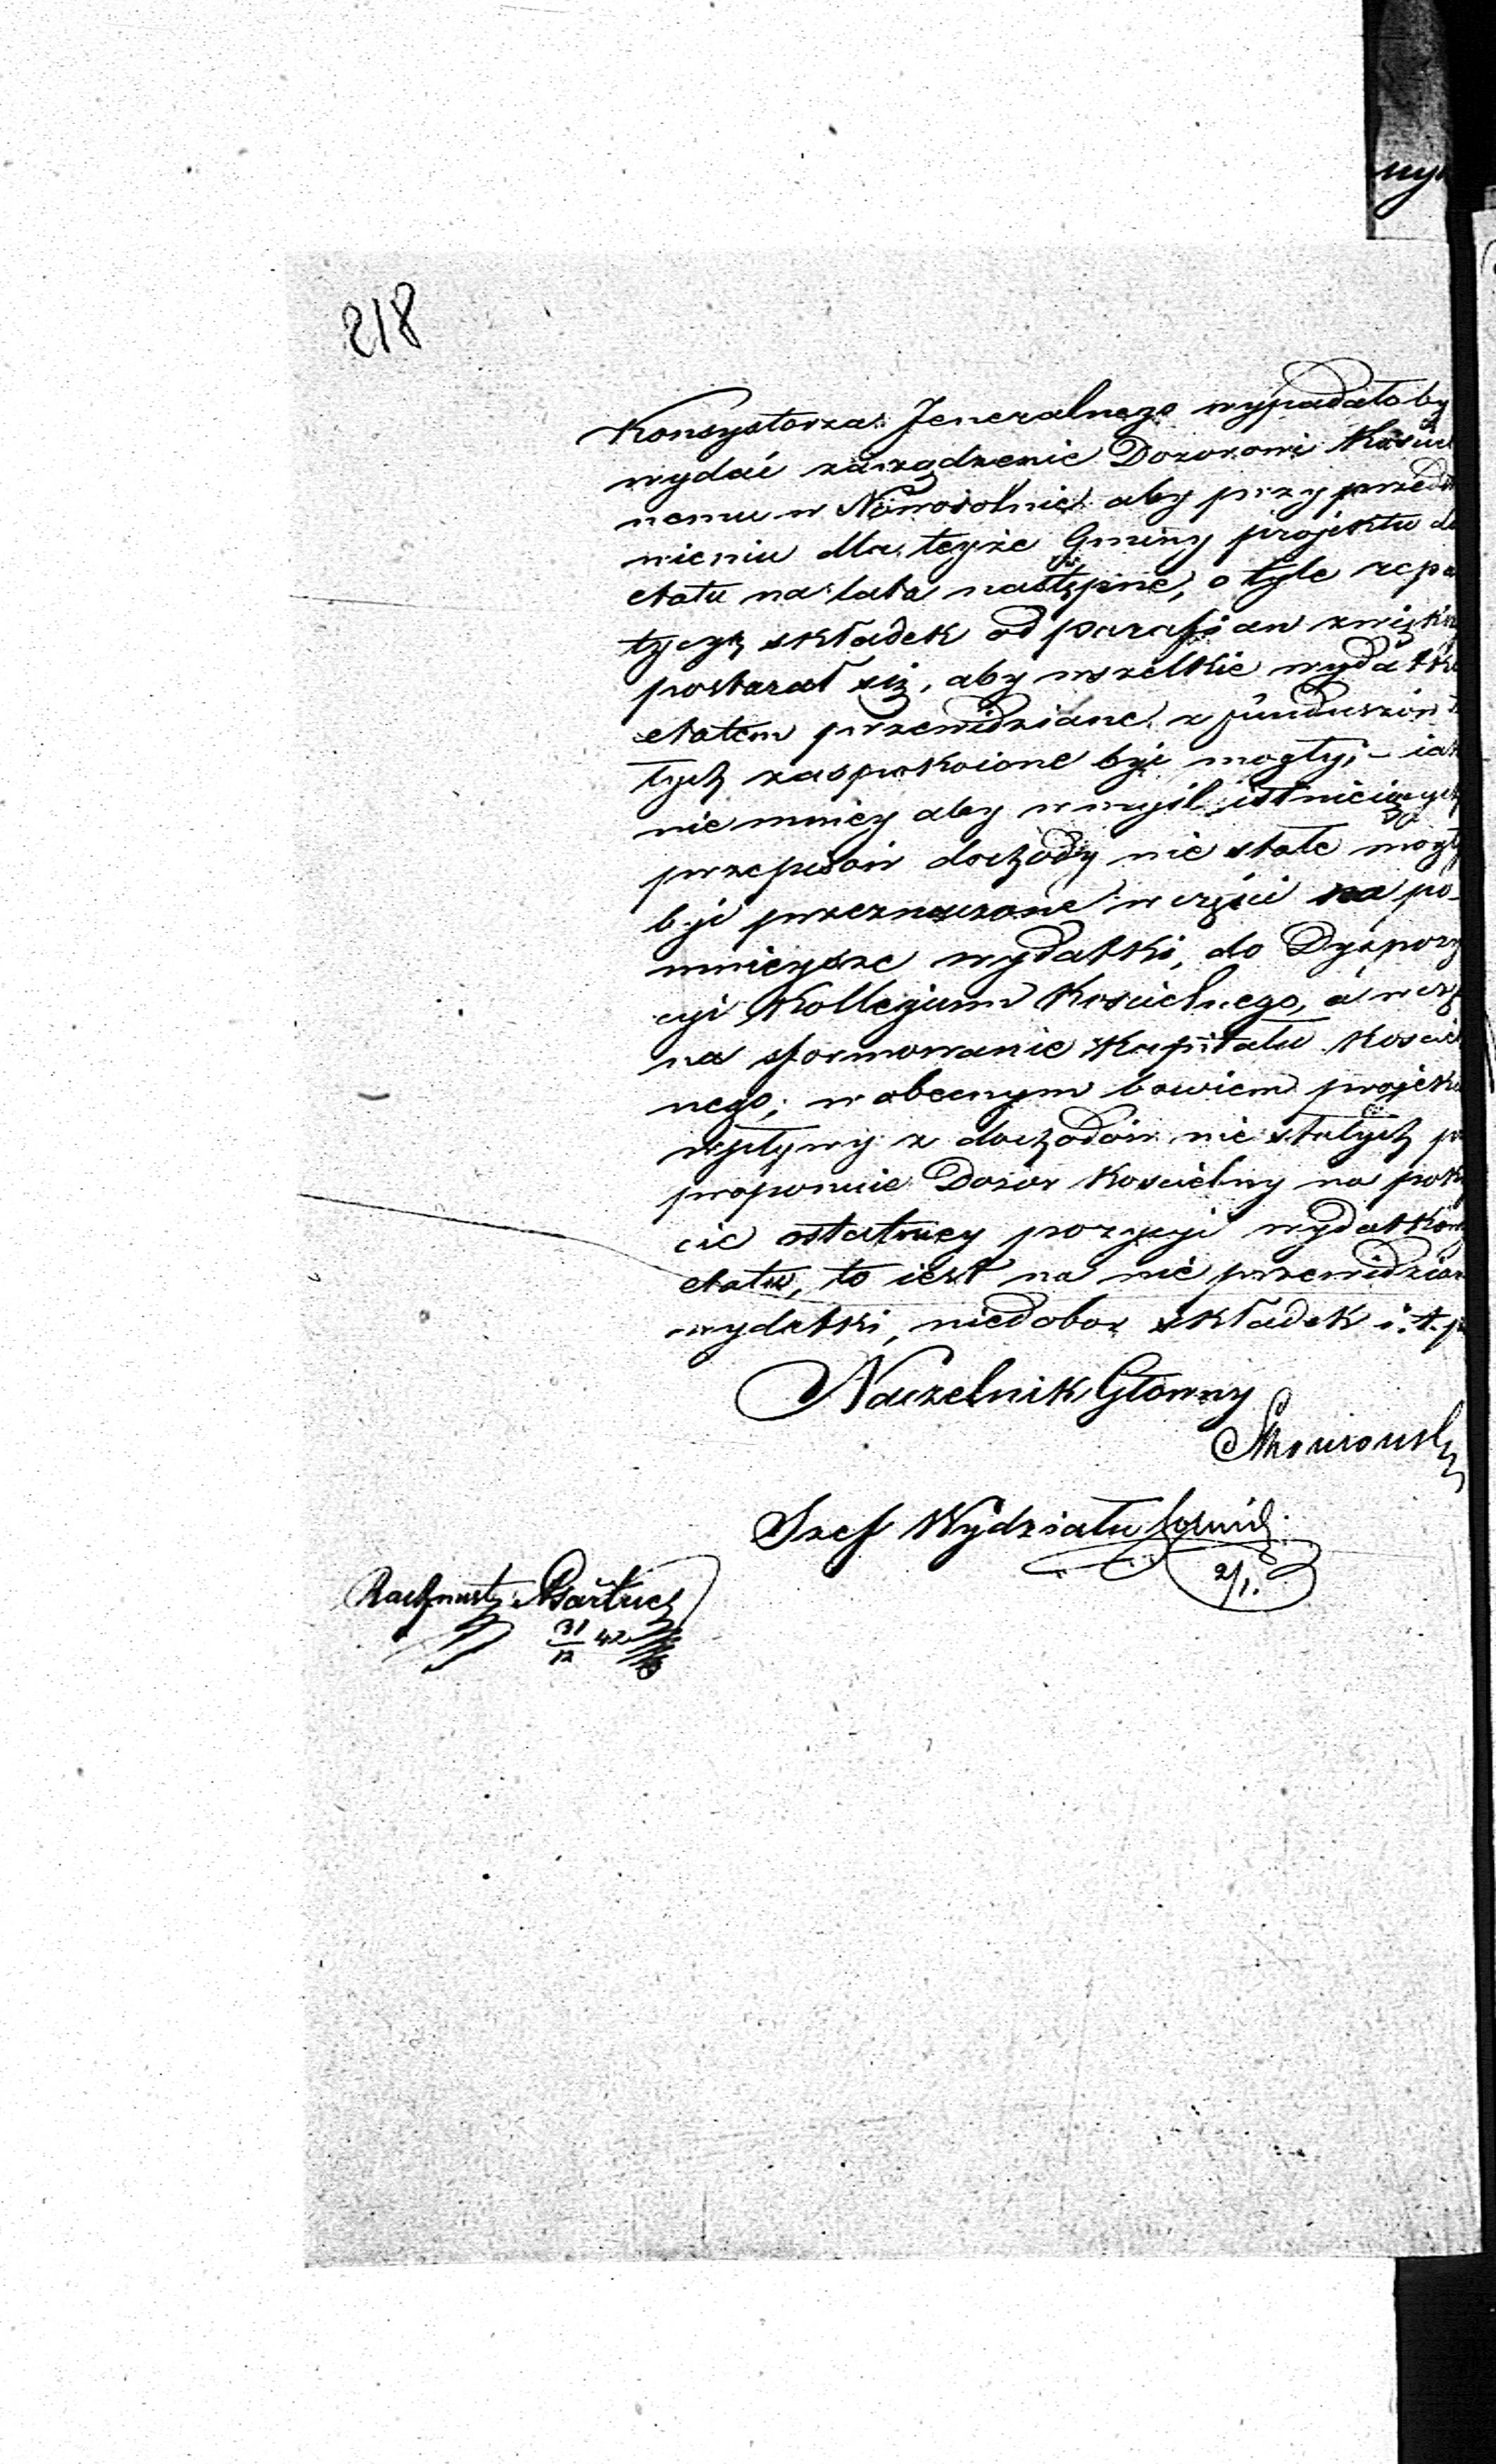 218
Konsystorza Jeneralnego wypadałoby
wydać zarządzenie Dozorowi Kościel
nemu w Nowosolnie aby przy przedsta
wieniu dla teyże Gminy projektu do
etatu na lata następne, o tyle repar
tycyą składek od parafian zwiększyć
postarał się, aby wszelkie wydatki
etatem przewidziane z funduszów
tych zaspokoione być mogły; – iak
nie mniey aby w myśl istnieiących
przepisów dochody nie stałe mogły
być przeznaczone w części na po-
mnieysze wydatki, do Dyspozy
cyi Kollegium Kościelnego, a w czę
na sformowanie Kapitału Kościel
nego; w obecnym bowiem projekcie
wpływy z dochodów nie stałych
proponuie Dozór Kościelny na pokry
cie ostatniey pozycyi wydatków
etatu, to iest na nie przewidziane
wydatki, niedobor składek i.t.p
Naczelnik Główny
Szef Wydziału
2/1.
31/12 42